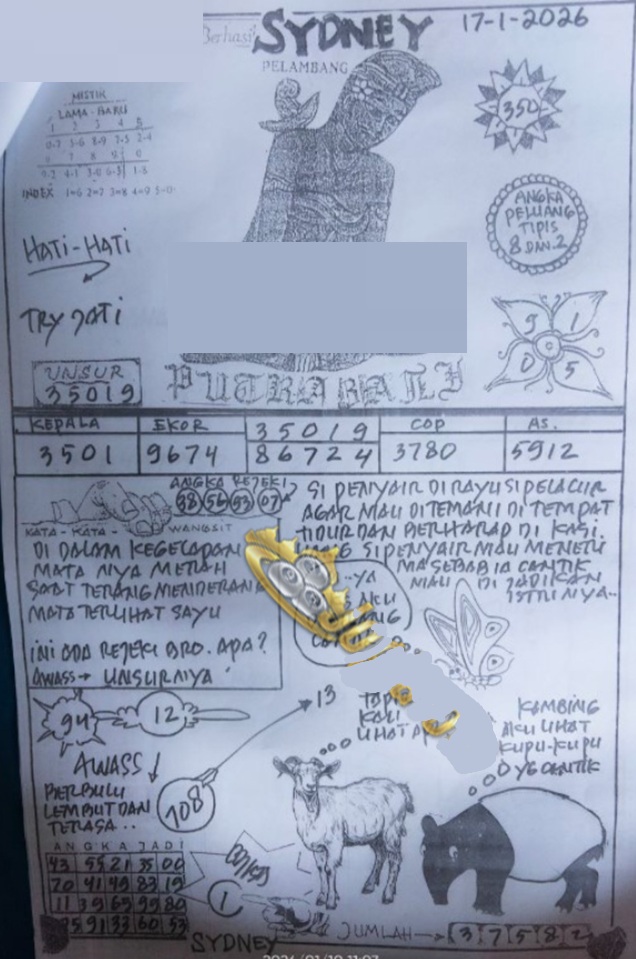 Berhasil SYDNEY 17-1-2026
PELAMBANG
MISTIK
LAMA - BARU
1 2 3 4 5
0-7 5-6 8-9 7-5 2-4
6 7 8 9 0
INDEX 1=6 2=7 3=8 4=9 5=0
350
ANGKA
PELUANG
TIPIS
8 DAN 2
HATI-HATI
TRY JATI
9 1
0 5
UNSUR
35019
PUTRA BALI
KEPALA EKOR 35019 COP AS.
3501 9674 86724 3780 5912
ANGKA REJEKI?
88 56 53 07
KATA - KATA - WANGSIT
DI DALAM KEGELAPAN
MATA NYA MERAH
SAAT TERANG MENDERANG
MATA TERLIHAT SAYU
INI ADA REJEKI BRO. APA?
AWASS → UNSURNIYA
SI PENYAIR DIRAYU SI PELACUR
AGAR MAU DITEMANI DI TEMPAT
TIDUR DAN BERHARAP DI KASI.
SI PENYAIR MAU
MA SEBAB IA CANTIK
MAU DI JADIKAN
ISTRI NYA..
AKU
94 12
13
KALI
LIHAT
KAMBING
AKU LIHAT
KUPU-KUPU
YG CANTIK
AWASS
BERBULU
LEMBUT DAN
TERASA..
708
ANGKA JADI
43 55 21 35 00
70 41 49 83 19
11 39 65 99 80
95 91 33 60 53
1
SYDNEY
JUMLAH → 3 7 5 8 2